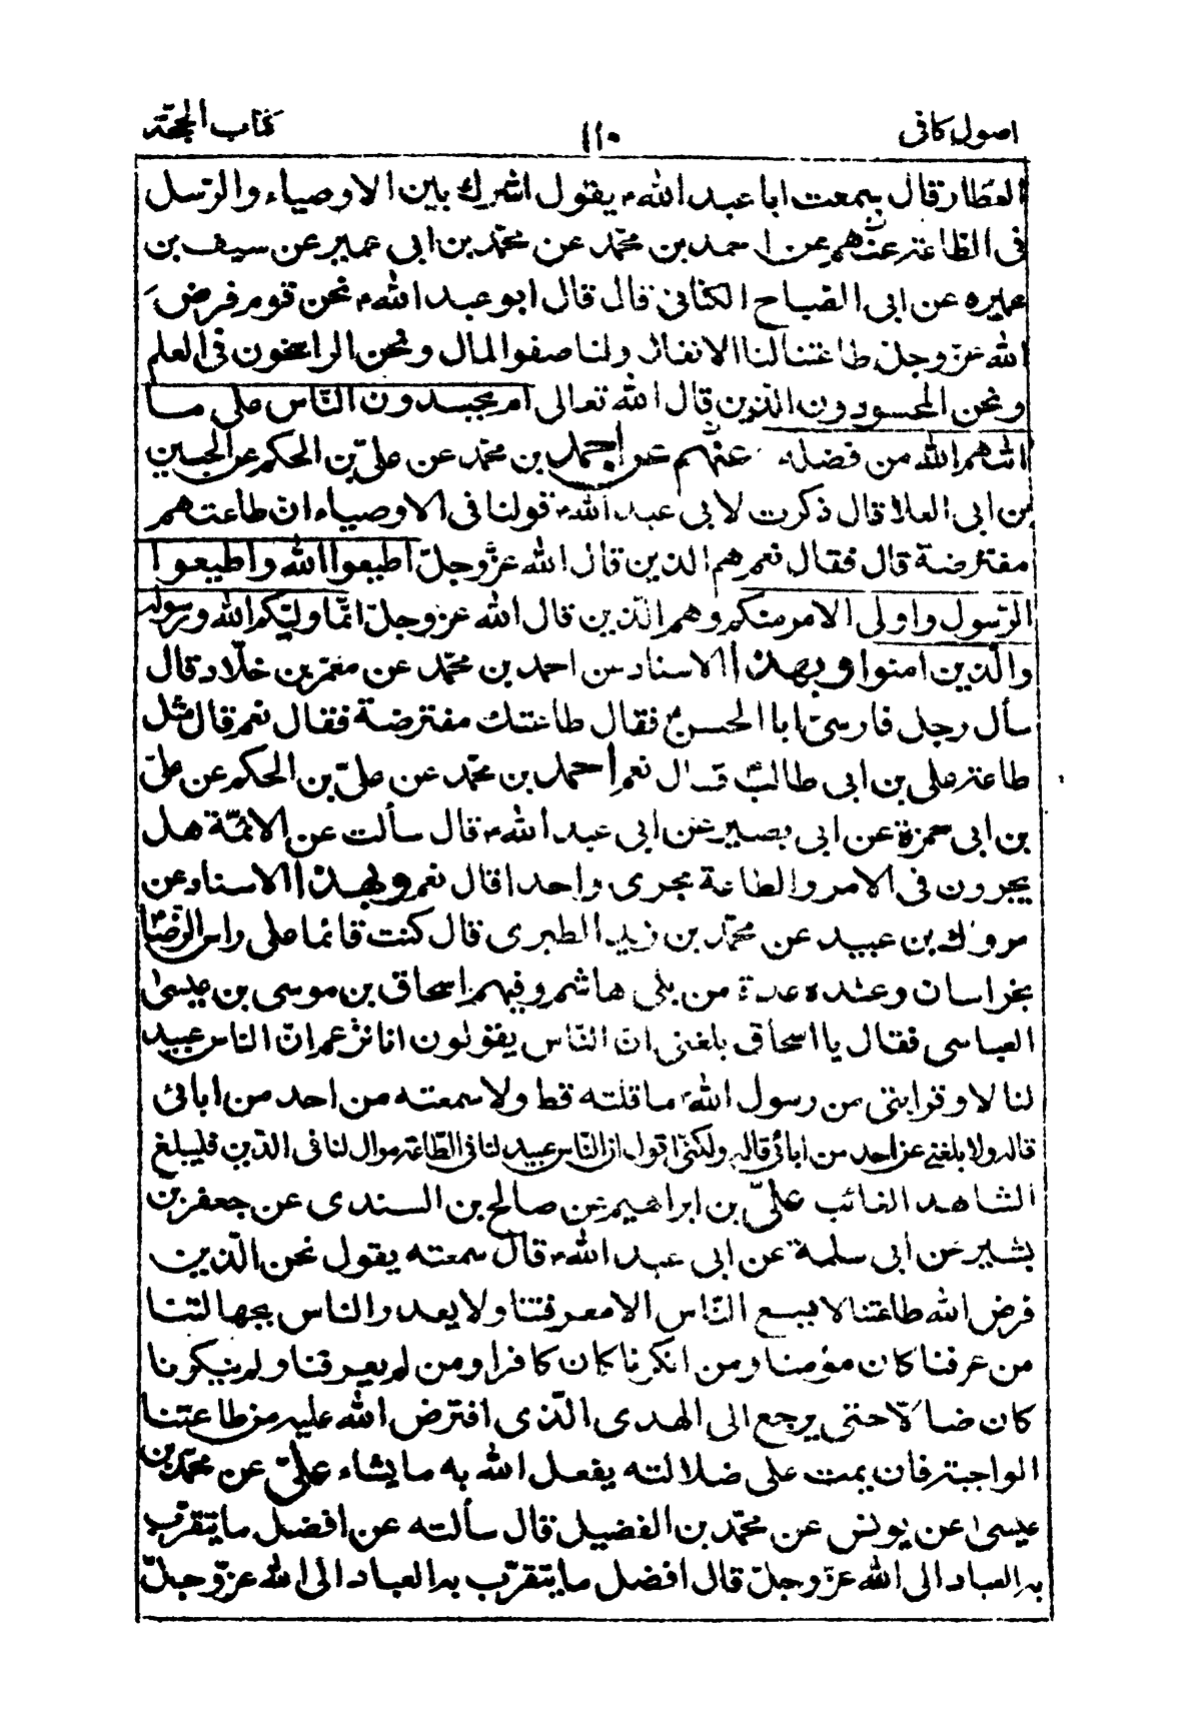 اصول كافى ١١٠ كتاب الحجّة
العطّار قال سمعت ابا عبد اللهؑ يقول اشرك بين الاوصياء والرّسل
فى الطّاعة عنهم عن احمد بن محمّد عن محمّد بن ابى عمير عن سيف بن
عميره عن ابى الصّباح الكنانى قال قال ابو عبد اللهؑ نحن قوم فرض
الله عزّ وجلّ طاعتنا لنا الانفال ولنا صفو المال ونحن الراسخون فى العلم
ونحن المحسودون الذين قال الله تعالى ام يحسدون النّاس على ما
اتٰهم الله من فضله عنهم عن احمد بن محمّد عن علىّ بن الحكم عن الحسين
بن ابى العلا قال ذكرت لابى عبد اللهؑ قولنا فى الاوصياء ان طاعتهم
مفترضة قال فقال نعم هم الذين قال الله عزّ وجلّ اطيعوا الله واطيعوا
الرّسول واولى الامر منكم وهم الّذين قال الله عزّ وجلّ انّما وليّكم الله ورسوله
والّذين امنوا وبهذا الاسناد عن احمد بن محمّد عن معمّر بن خلّاد قال
سأل رجل فارسىّ ابا الحسنؑ فقال طاعتك مفترضة فقال نعم قال مثل
طاعة على بن ابى طالبؑ قال نعم احمد بن محمّد عن علىّ بن الحكم عن علىّ
بن ابى حمزة عن ابى بصير عن ابى عبد اللهؑ قال سألت عن الائمّة هل
يجرون فى الامر والطاعة مجرى واحدا قال نعم وبهذا الاسناد عن
مروك بن عبيد عن محمّد بن زيد الطبرى قال كنت قائما على راس الرّضاؑ
بخراسان وعنده عدة من بنى هاشم وفيهم اسحاق بن موسى بن عيسىٰ
العباسى فقال يا اسحاق بلغنى انّ النّاس يقولون انا نزعم انّ الناس عبيد
لنا لا وقرابتى من رسول اللهؐ ما قلته قط ولا سمعته من احد من ابائى
قاله ولا بلغنى عن احد من ابائى قاله ولكنّى اقول ان النّاس عبيد لنا فى الطّاعة موال لنا فى الدّين فليبلغ
الشاهد الغائب علىّ بن ابراهيم عن صالح بن السندى عن جعفر بن
بشير عن ابى سلمة عن ابى عبد اللهؑ قال سمعته يقول نحن الّذين
فرض الله طاعتنا لا يسع النّاس الا معرفتنا ولا يعذر الناس بجهالتنا
من عرفنا كان مؤمنا ومن انكرنا كان كافرا ومن لم يعرفنا ولم ينكرنا
كان ضالّا حتى يرجع الى الهدى الّذى افترض الله عليه من طاعتنا
الواجبة فان يمت على ضلالته يفعل الله به ما يشاء علىّ عن محمّد بن
عيسىٰ عن يونس عن محمّد بن الفضيل قال سألته عن افضل ما يتقرّب
به العباد الى الله عزّ وجلّ قال افضل ما يتقرّب به العباد الى الله عزّ وجلّ